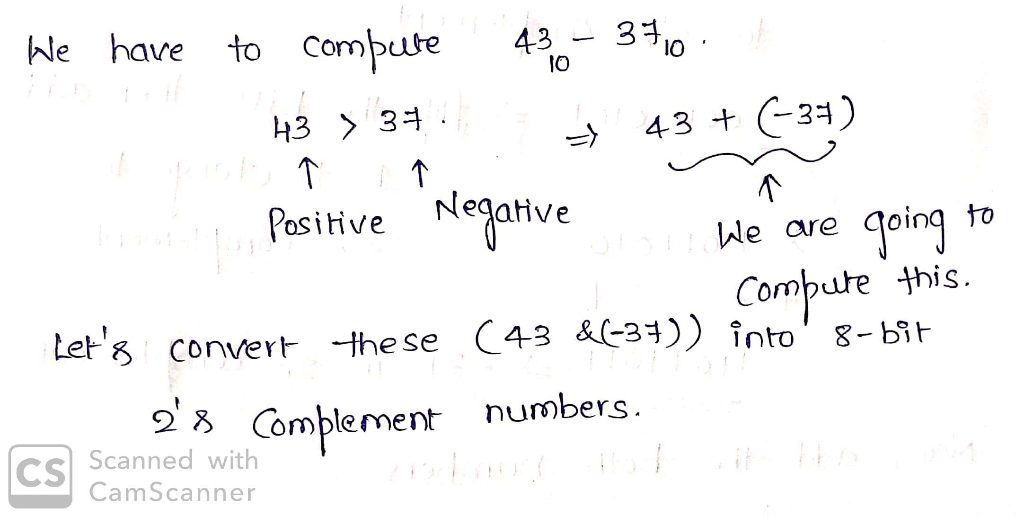 We have to compute 43₁₀ - 37₁₀.
43 > 37. ⇒ 43 + (-37)
↑ ↑ ↑
Positive Negative We are going to
compute this.
Let's convert these (43 &(-37)) into 8-bit
2's Complement numbers.
CS Scanned with
CamScanner